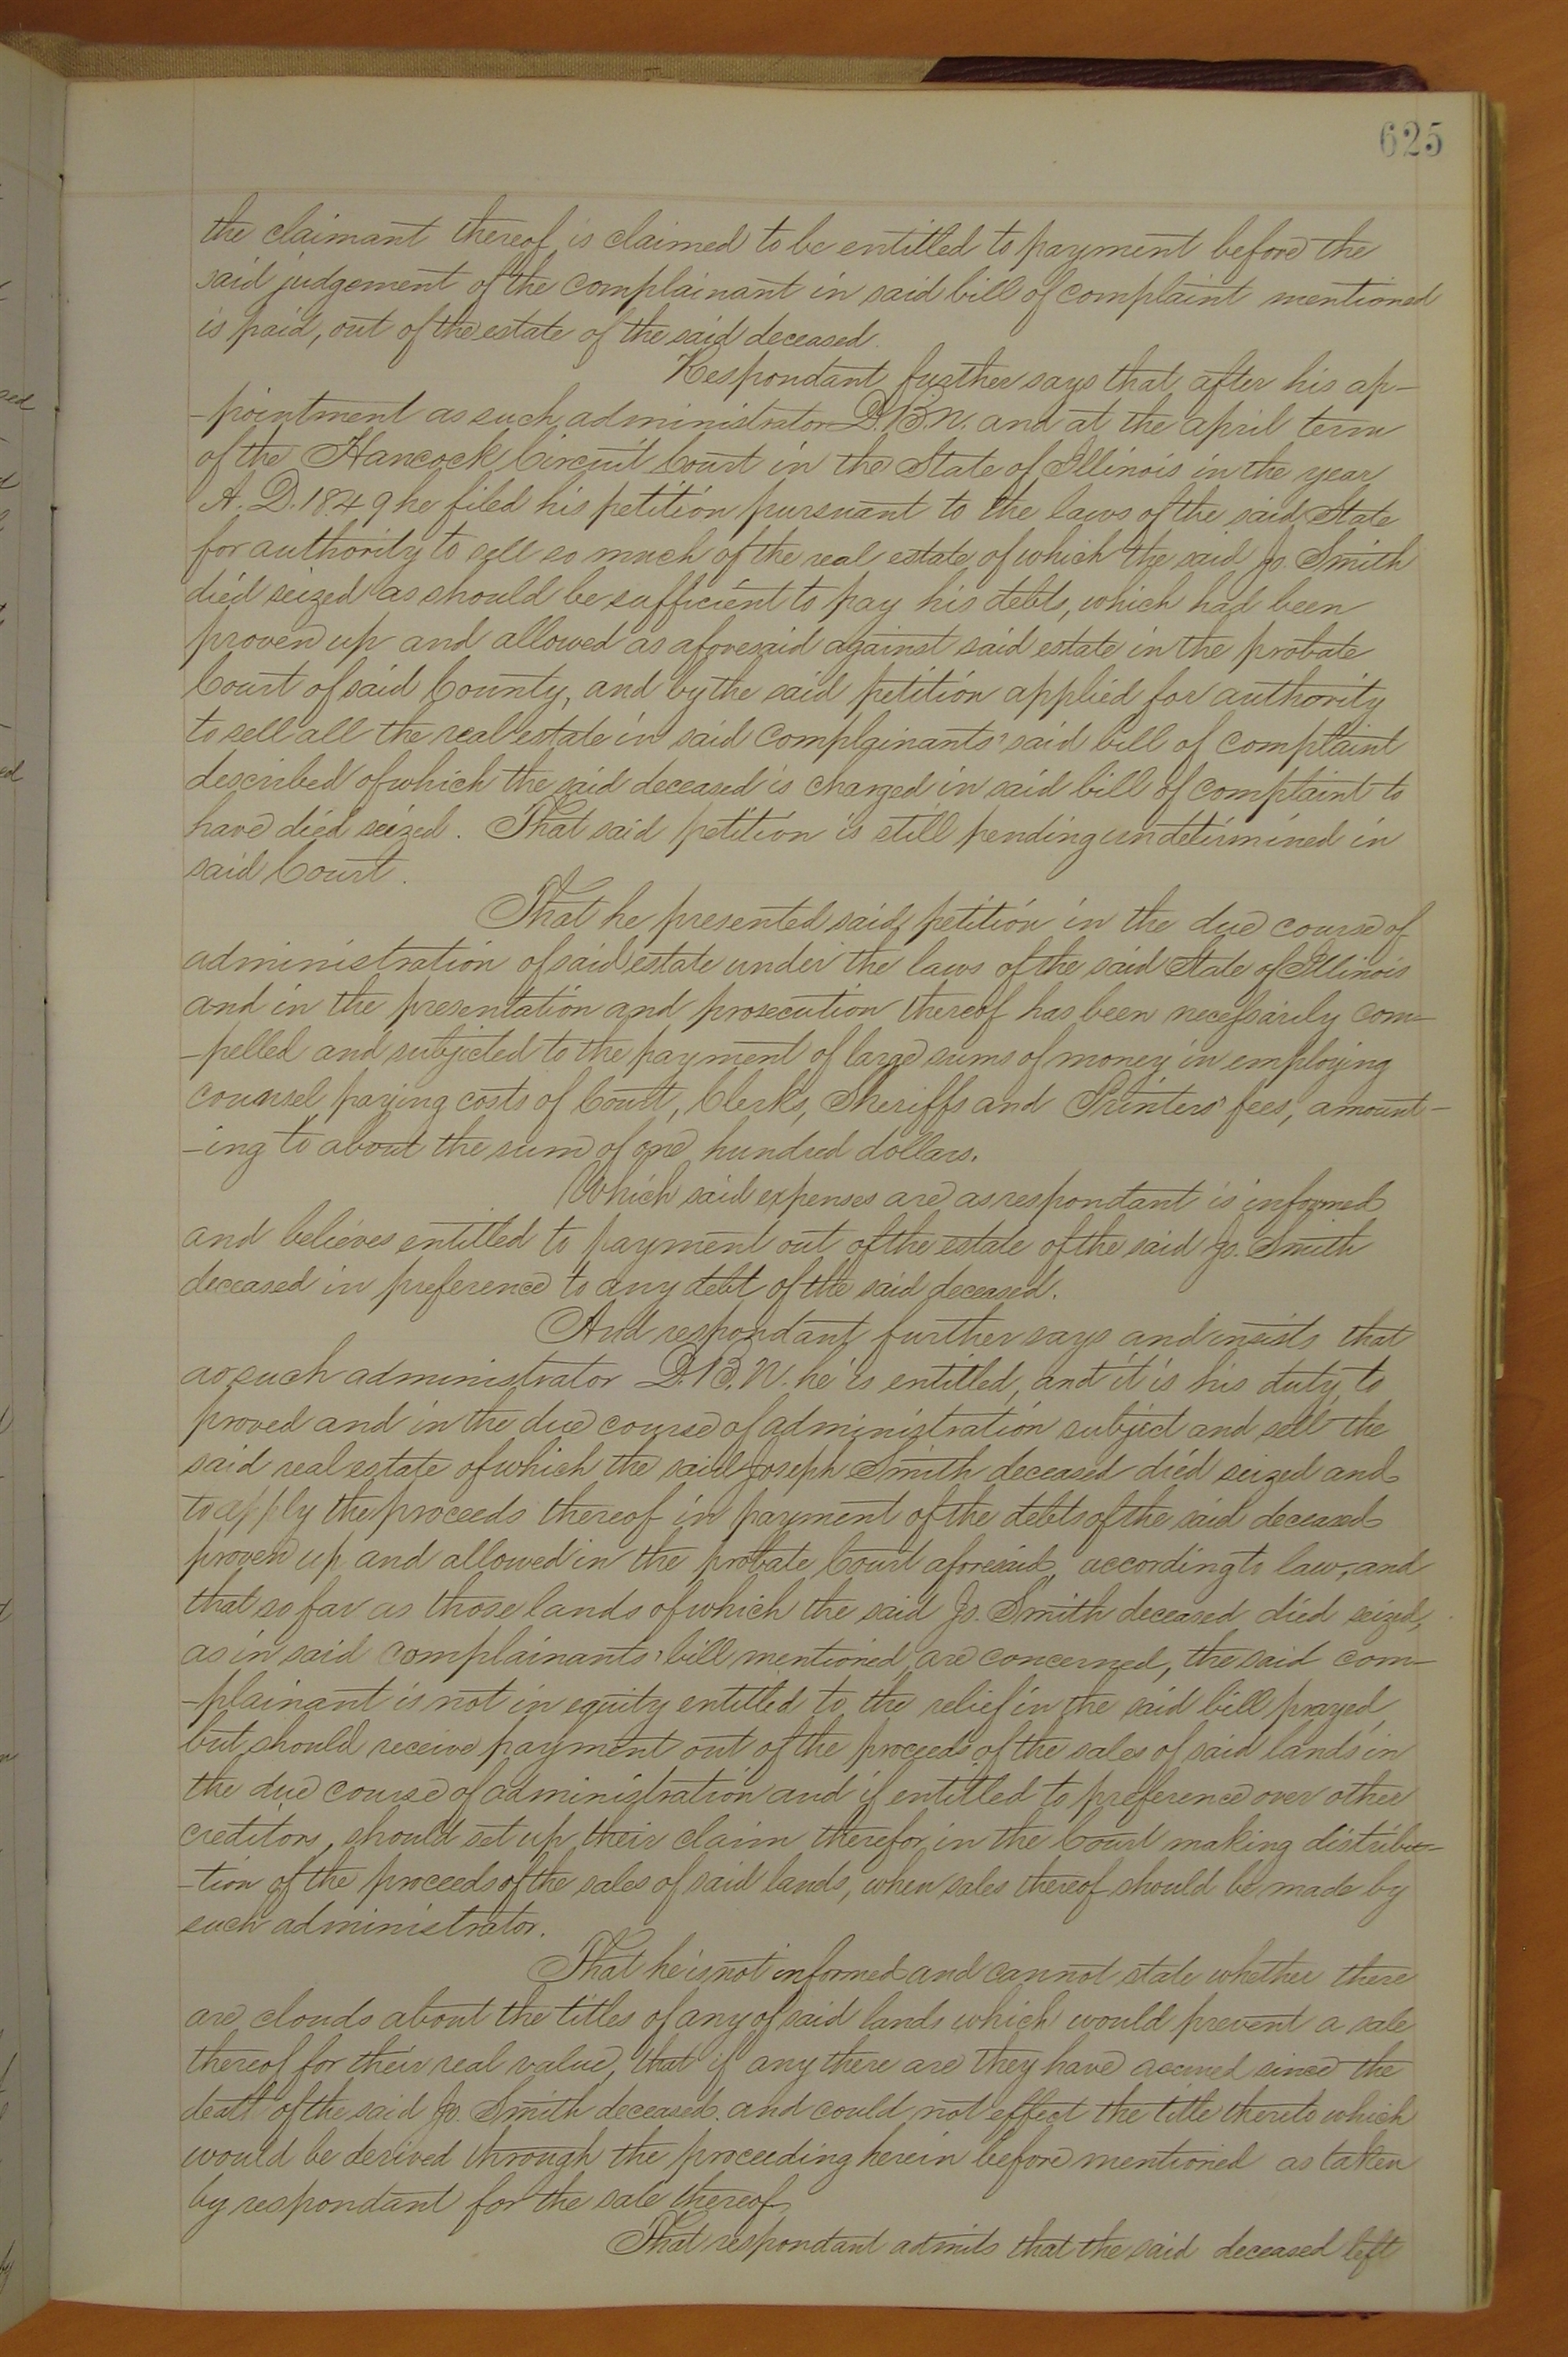 625
the claimant thereof is claimed to be entitled to payment before the
said judgement of the complainant in said bill of complaint mentioned
is paid, out of the estate of the said deceased.
Respondant further says that after his ap-
-pointment as such administrator D.B.N. and at the april term
of the Hancock Circuit Court in the State of Illinois in the year
A. D. 1849 he filed his petition pursuant to the laws of the said State
for authority to sell so much of the real estate of which the said Jo. Smith
died seized as should be sufficient to pay his debts, which had been
proven up and allowed as aforesaid against said estate in the probate
Court of said County, and by the said petition applied for authority
to sell all the real estate in said complainants' said bill of complaint
described of which the said deceased is charged in said bill of complaint to
have died seized. That said petition is still pending undetermined in
said Court.
That he presented said petition in the due course of
administration of said estate under the laws of the said State of Illinois
and in the presentation and prosecution thereof has been necessarily com-
-pelled and subjected to the payment of large sums of money in employing
counsel, paying costs of Court, Clerks, Sheriffs and Printers' fees, amount-
-ing to about the sum of one hundred dollars.
Which said expenses are as respondant is informed
and believes entitled to payment out of the estate of the said Jo. Smith
deceased in preference to any debt of the said deceased.
And respondant further says and insists that
as such administrator D.B.N. he is entitled, and it is his duty to
proved and in the due course of administration subject and sell the
said real estate of which the said Joseph Smith deceased died seized and
to apply the proceeds thereof in payment of the debts of the said deceased
proven up and allowed in the probate Court aforesaid, according to law, and
that so far as those lands of which the said Jo. Smith deceased died seized,
as in said complainants' bill mentioned are concerned, the said com-
-plainant is not in equity entitled to the relief in the said bill prayed,
but should receive payment out of the proceeds of the sales of said lands in
the due course of administration and if entitled to preference over other
creditors, should set up their claim therefor in the Court making distribu-
-tion of the proceeds of the sales of said lands, when sales thereof should be made by
such administrator.
That he is not informed and cannot state whether there
are clouds about the titles of any of said lands which would prevent a sale
thereof for their real value, that if any there are they have accrued since the
death of the said Jo. Smith deceased. and could not effect the title thereto which
would be derived through the proceeding herein before mentioned as taken
by respondant for the sale thereof.
That respondant admits that the said deceased left